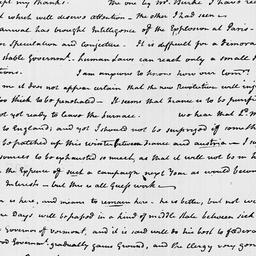 ept my thanks. The one by Mr. Burke I have rea
d which will deserve attention - The other I had seen -
arrival has brought Intelligence of the Explosion at Paris -
r Speculation and conjecture. It is difficult for a democra
table Governmt. - human Laws can reach only a small d
tions. I am anxious to know how our Comrs.
me it does not appear certain that the new Revolution will ing
too thick to be penetrated - It seems that France is to be purifi
not yet ready to leave the Furnace. we hear that Ld. M
to England; and yet I should not be surprized if someth
be patched up this winter between France and austria - I su
esources to be exhausted so much, as that it will not be in h
the Expence of such a campaign next Year as would becom
Interests - but this is all guess work -
n is here, and means to remain here - he is better, but not we
e Days will be passed in a kind of middle State between sick
e governor of vermont, and it is said will do his best to federal
ood Governmt. gradually gains Ground, and the Clergy very gen